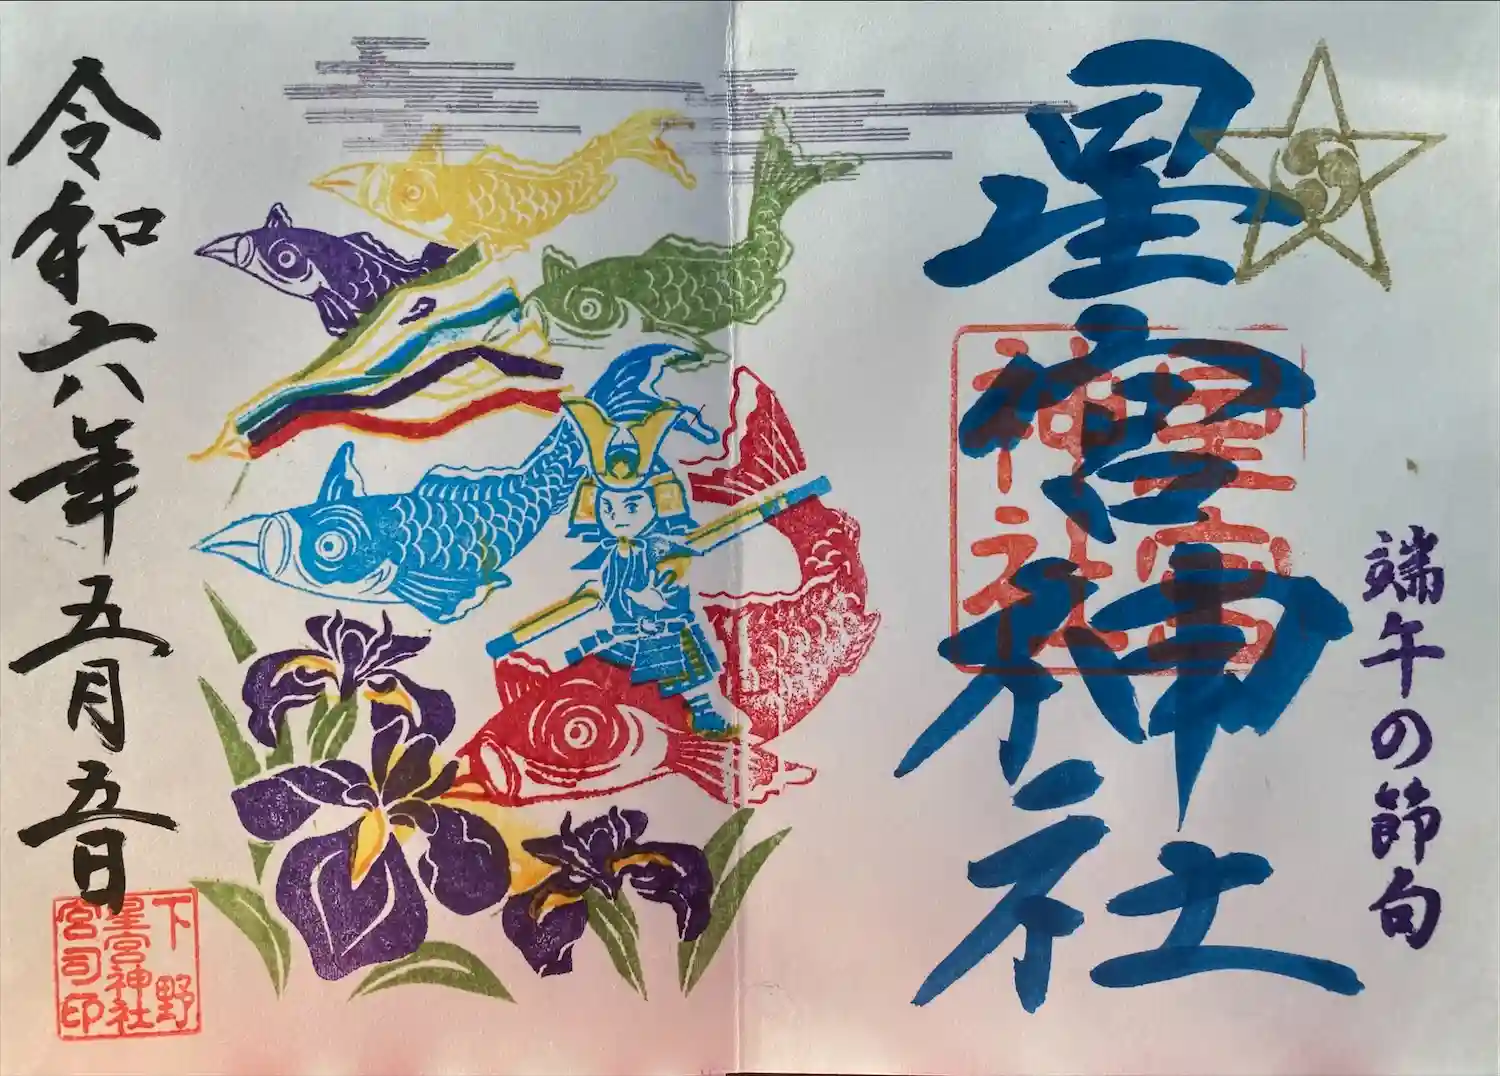 端午の節句
星宮神社
星宮
神社
令和六年五月五日
下野
星宮神社
宮司印